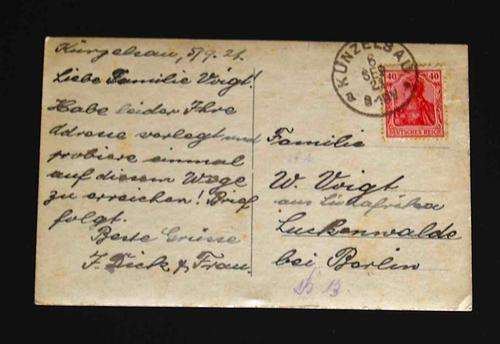 Künzelsau, 5/9.21.
Liebe Familie Voigt!
Habe leider Ihre
Adresse verlegt und
probiere einmal
auf diesem Wege
zu erreichen! Brief
folgt.
Beste Grüsse
J. Dick & Frau.
KÜNZELSAU
5
SEP
8-9 V
40 40
DEUTSCHES REICH
Familie
W. Voigt
aus Südafrika
Luckenwalde
bei Berlin